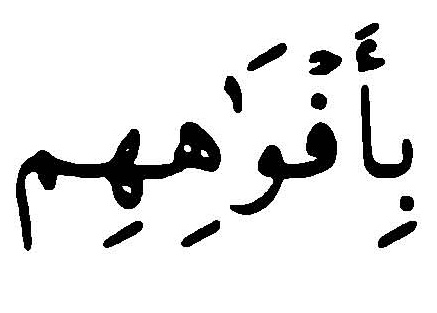 بِأَفۡوَٰهِهِم